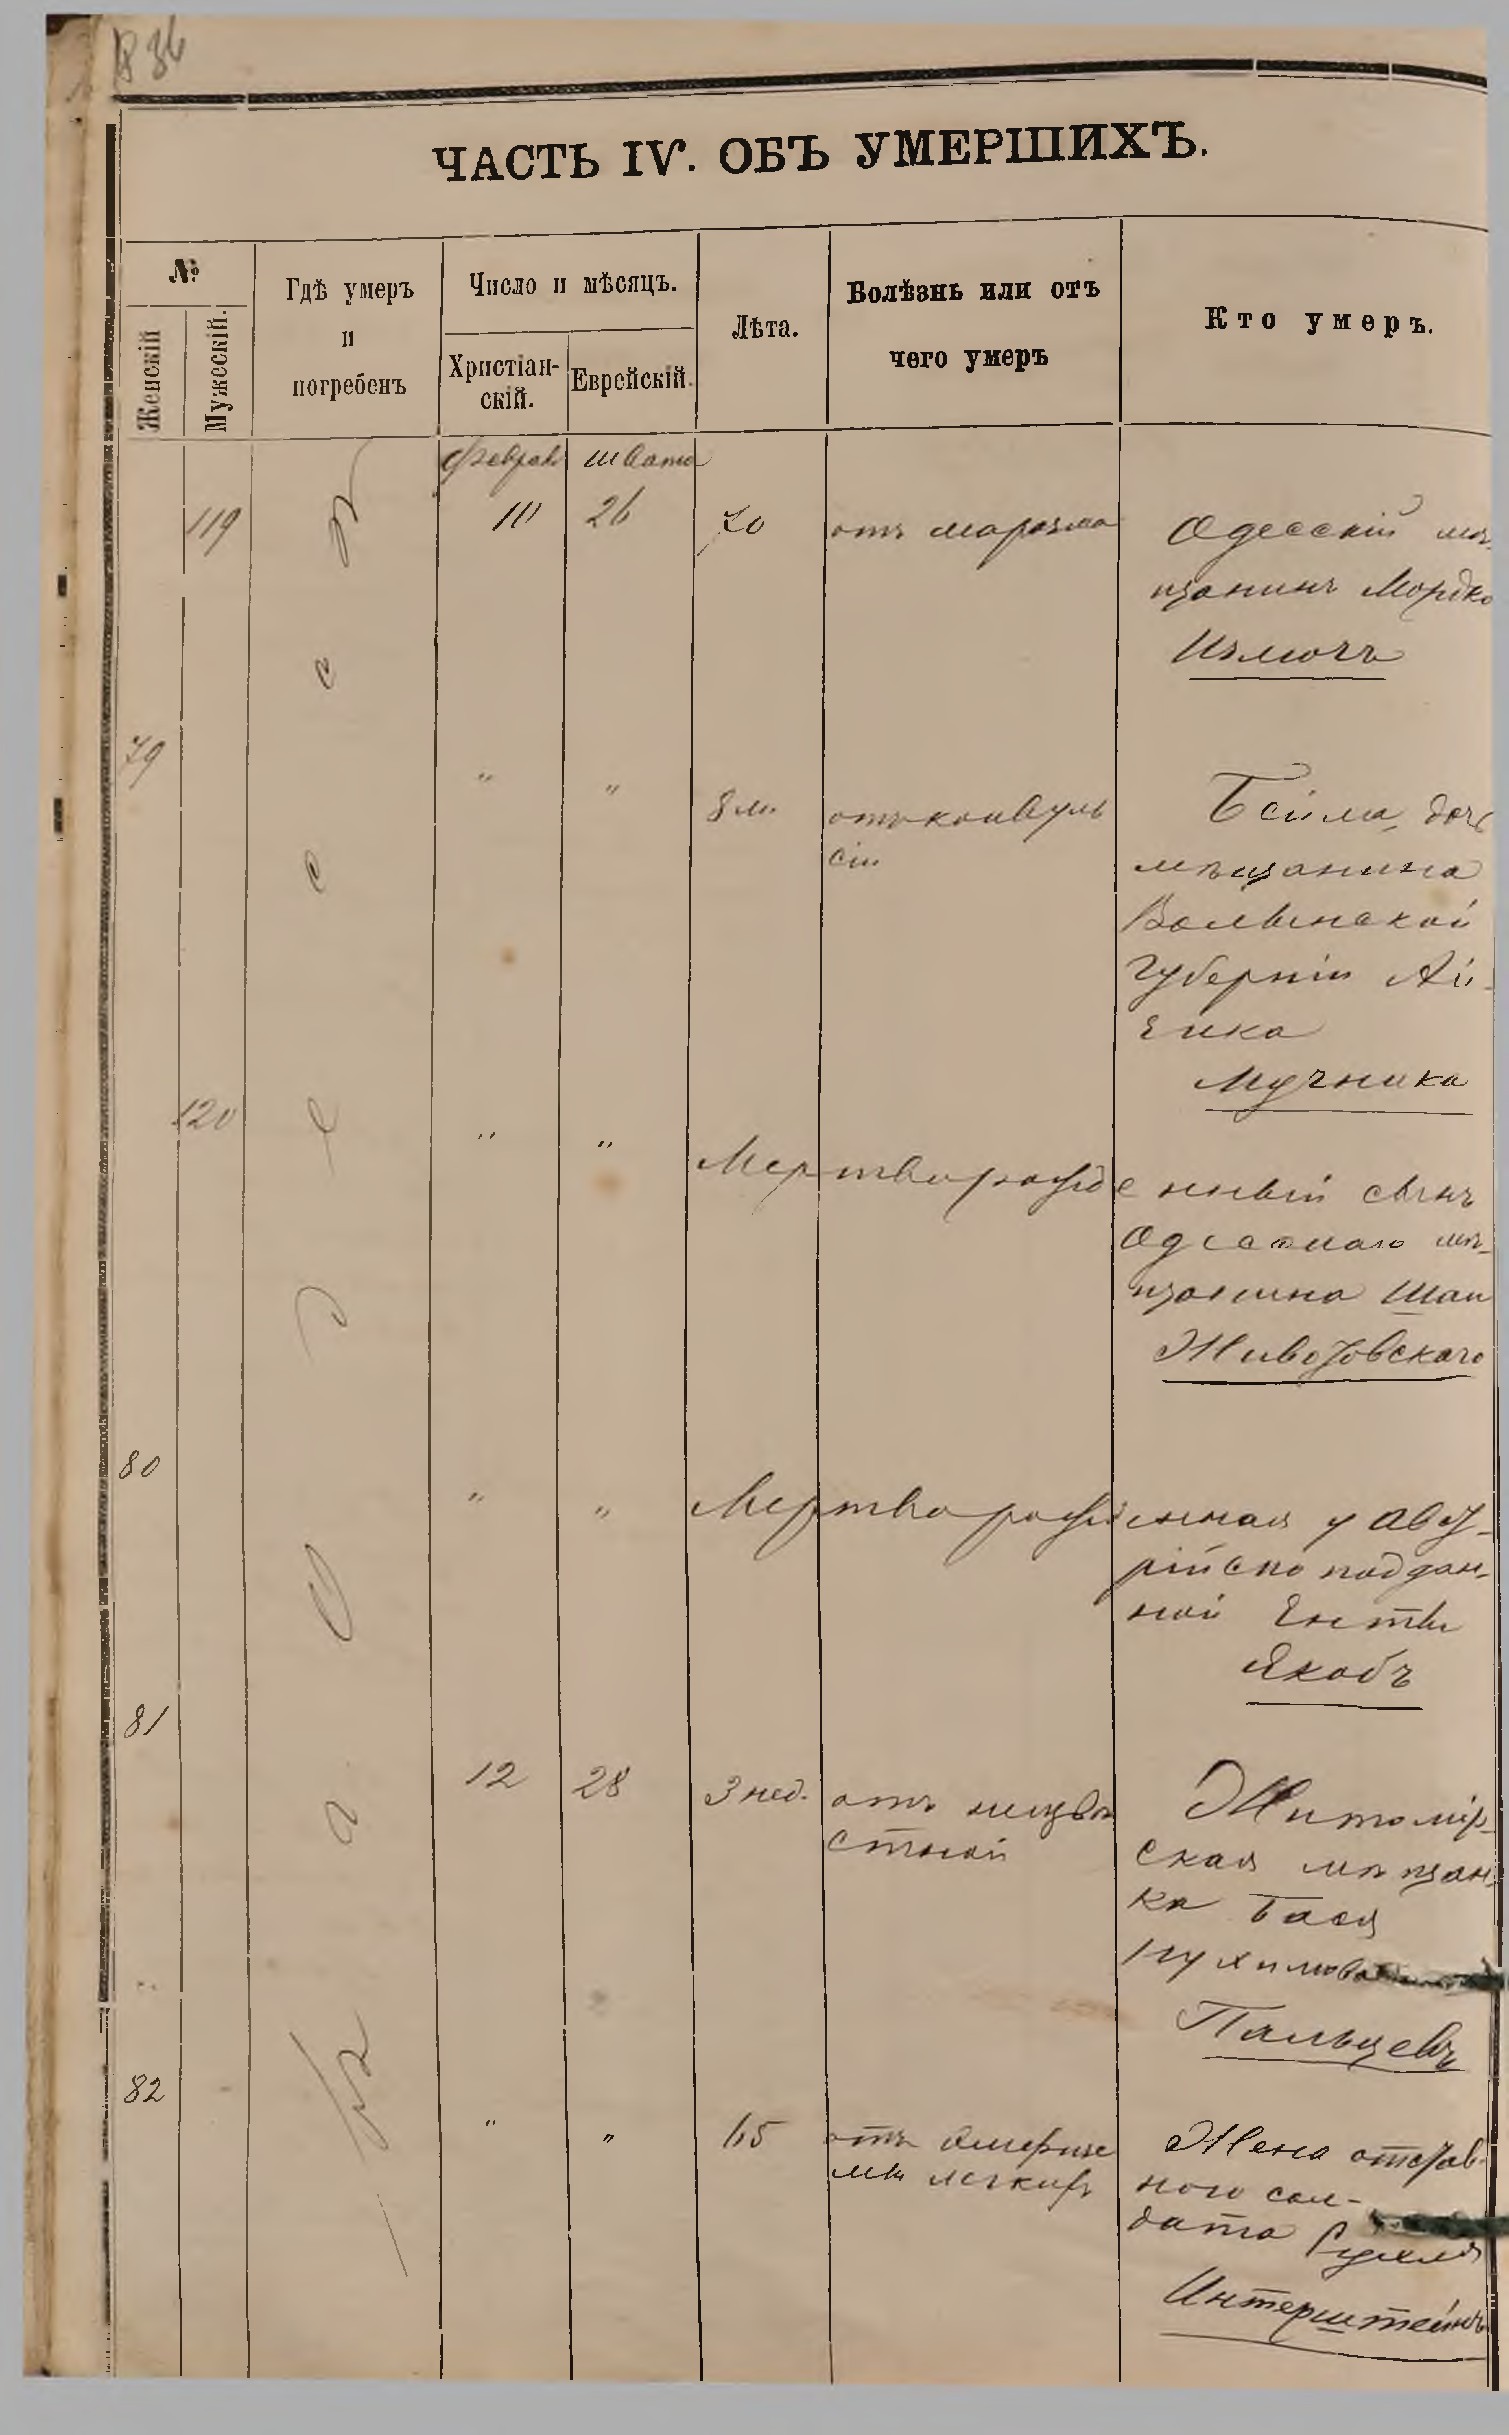 36
ЧАСТЬ IV. ОБЪ УМЕРШИХЪ.
№
Женскій
Мужескій.
Гдѣ умеръ
и
погребенъ
Число и мѣсяцъ.
Христіан-
скій.
Еврейскій.
Лѣта.
Болѣзнь или отъ
чего умеръ
Кто умеръ.
Феврал Швата
119 10 26 70 отъ маразма Одесскій мѣ-
щанинъ Мордко
79 " " 8 м. отъ конвуль
сіи
Бейла, дочь
мѣщанина
Волынской
губерніи Ай-
зика
Мучника
120 " " Мертворожденный сынъ
Одесскаго мѣ-
щанина Шаи
Животовскаго
80 " " Мертворожденная у авст-
рійско поддан-
ной Енты
Якобъ
81 12 28 3 нед. отъ неизвѣ
стной
Житомір-
ская мѣщан-
ка Бася
Нухимова
Пальцевъ
82 " " 65 отъ эмфизе
мы легкихъ
Жена отстав-
ного сол-
дата Рухля
Интерштейнъ
въ Одессѣ